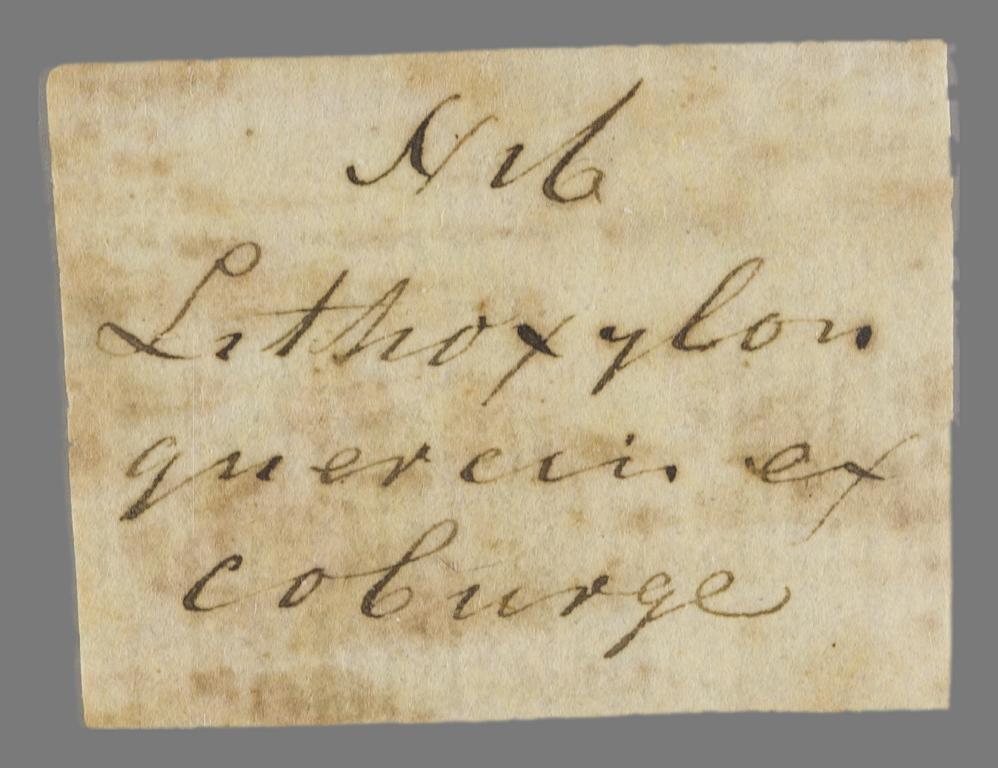 N 16
Lithoxylon
quercin. ex
coburge